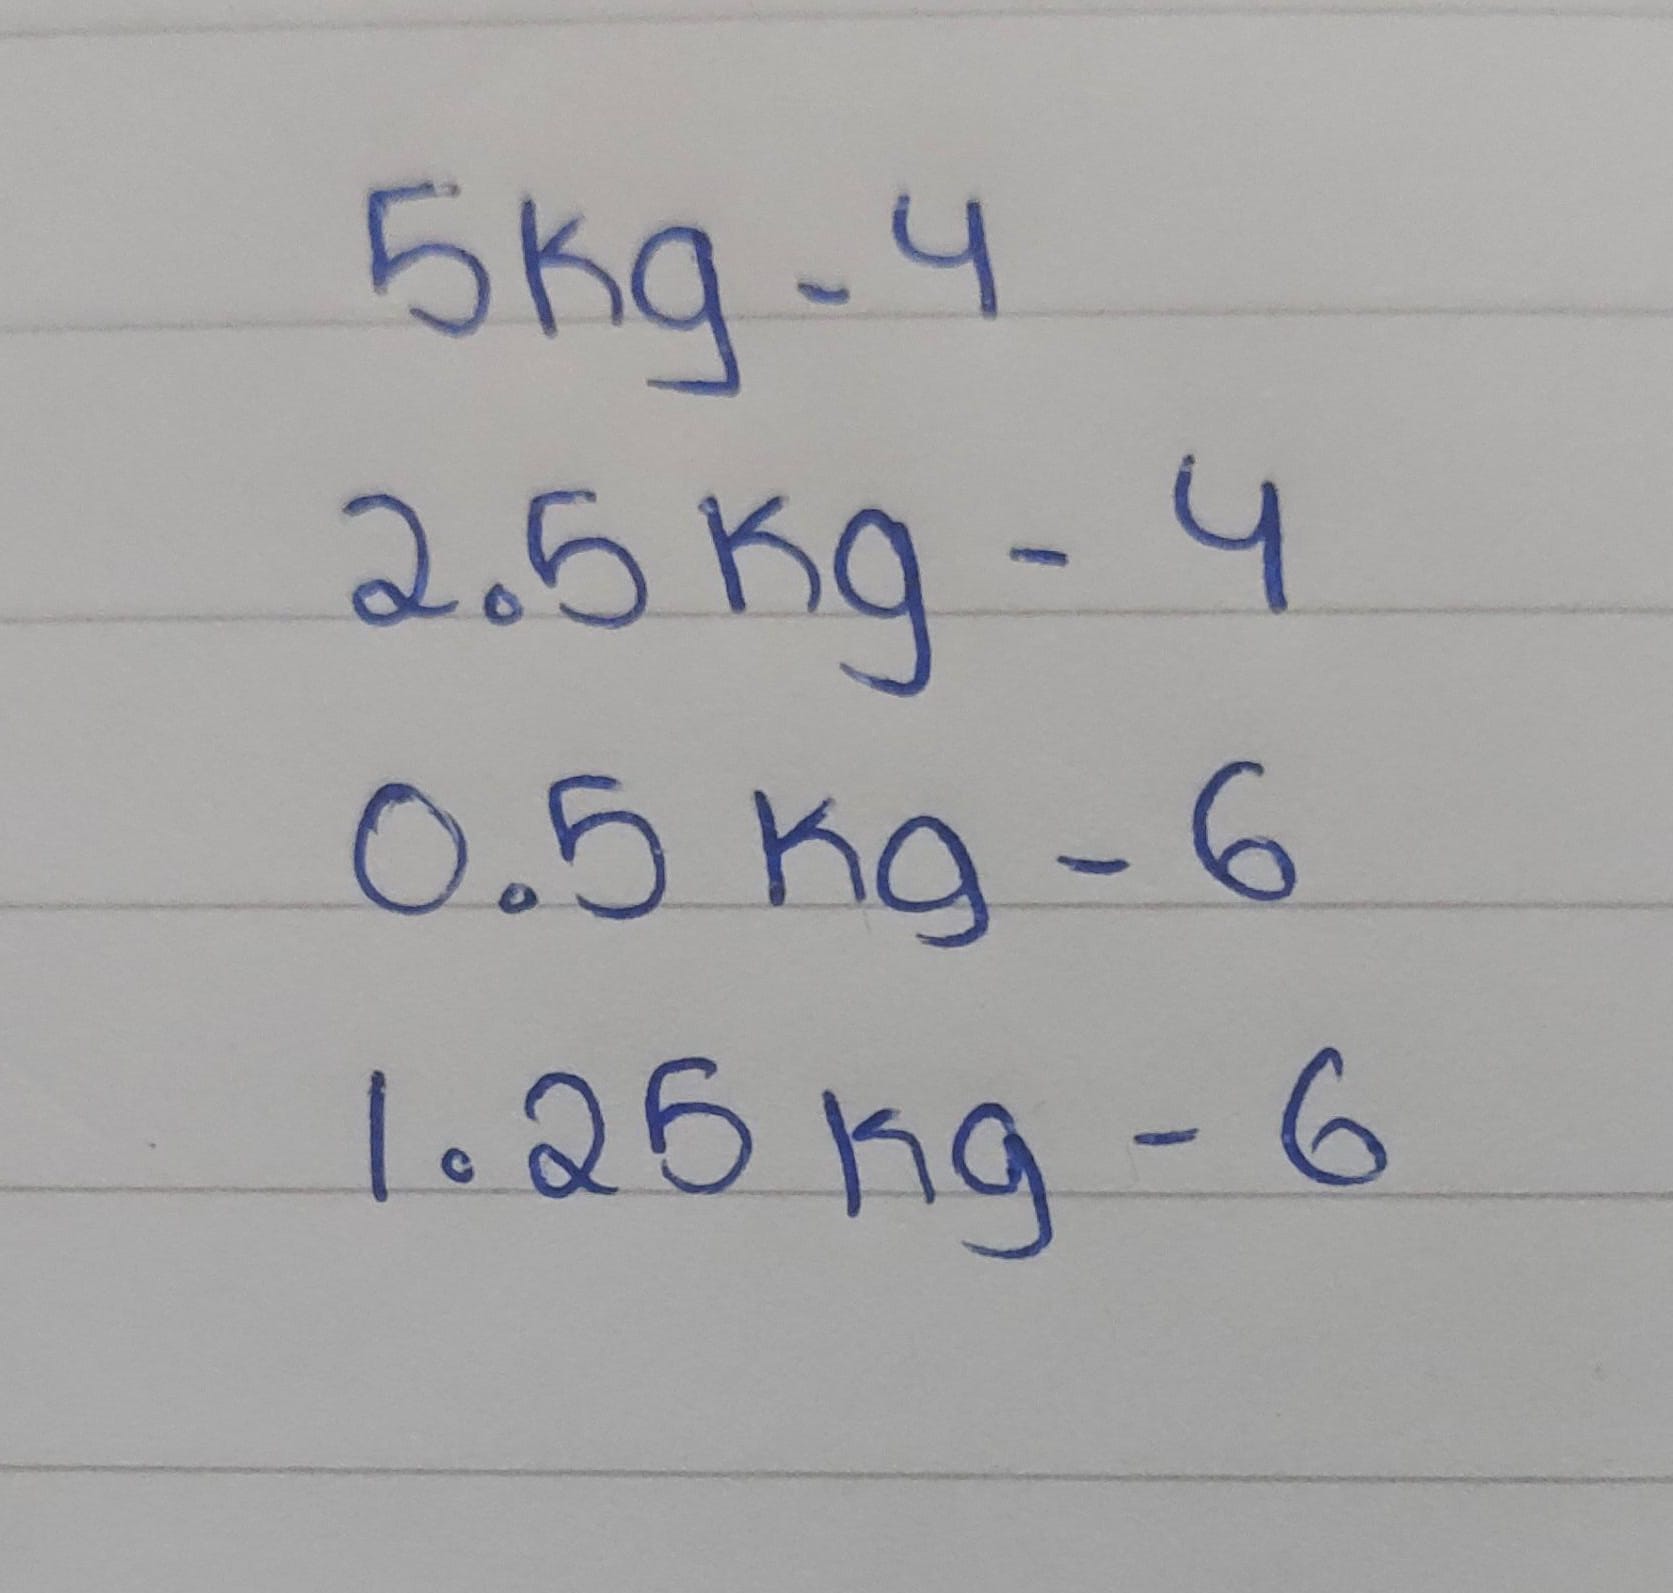 5kg - 4
2.5 kg - 4
0.5 kg - 6
1.25 kg - 6